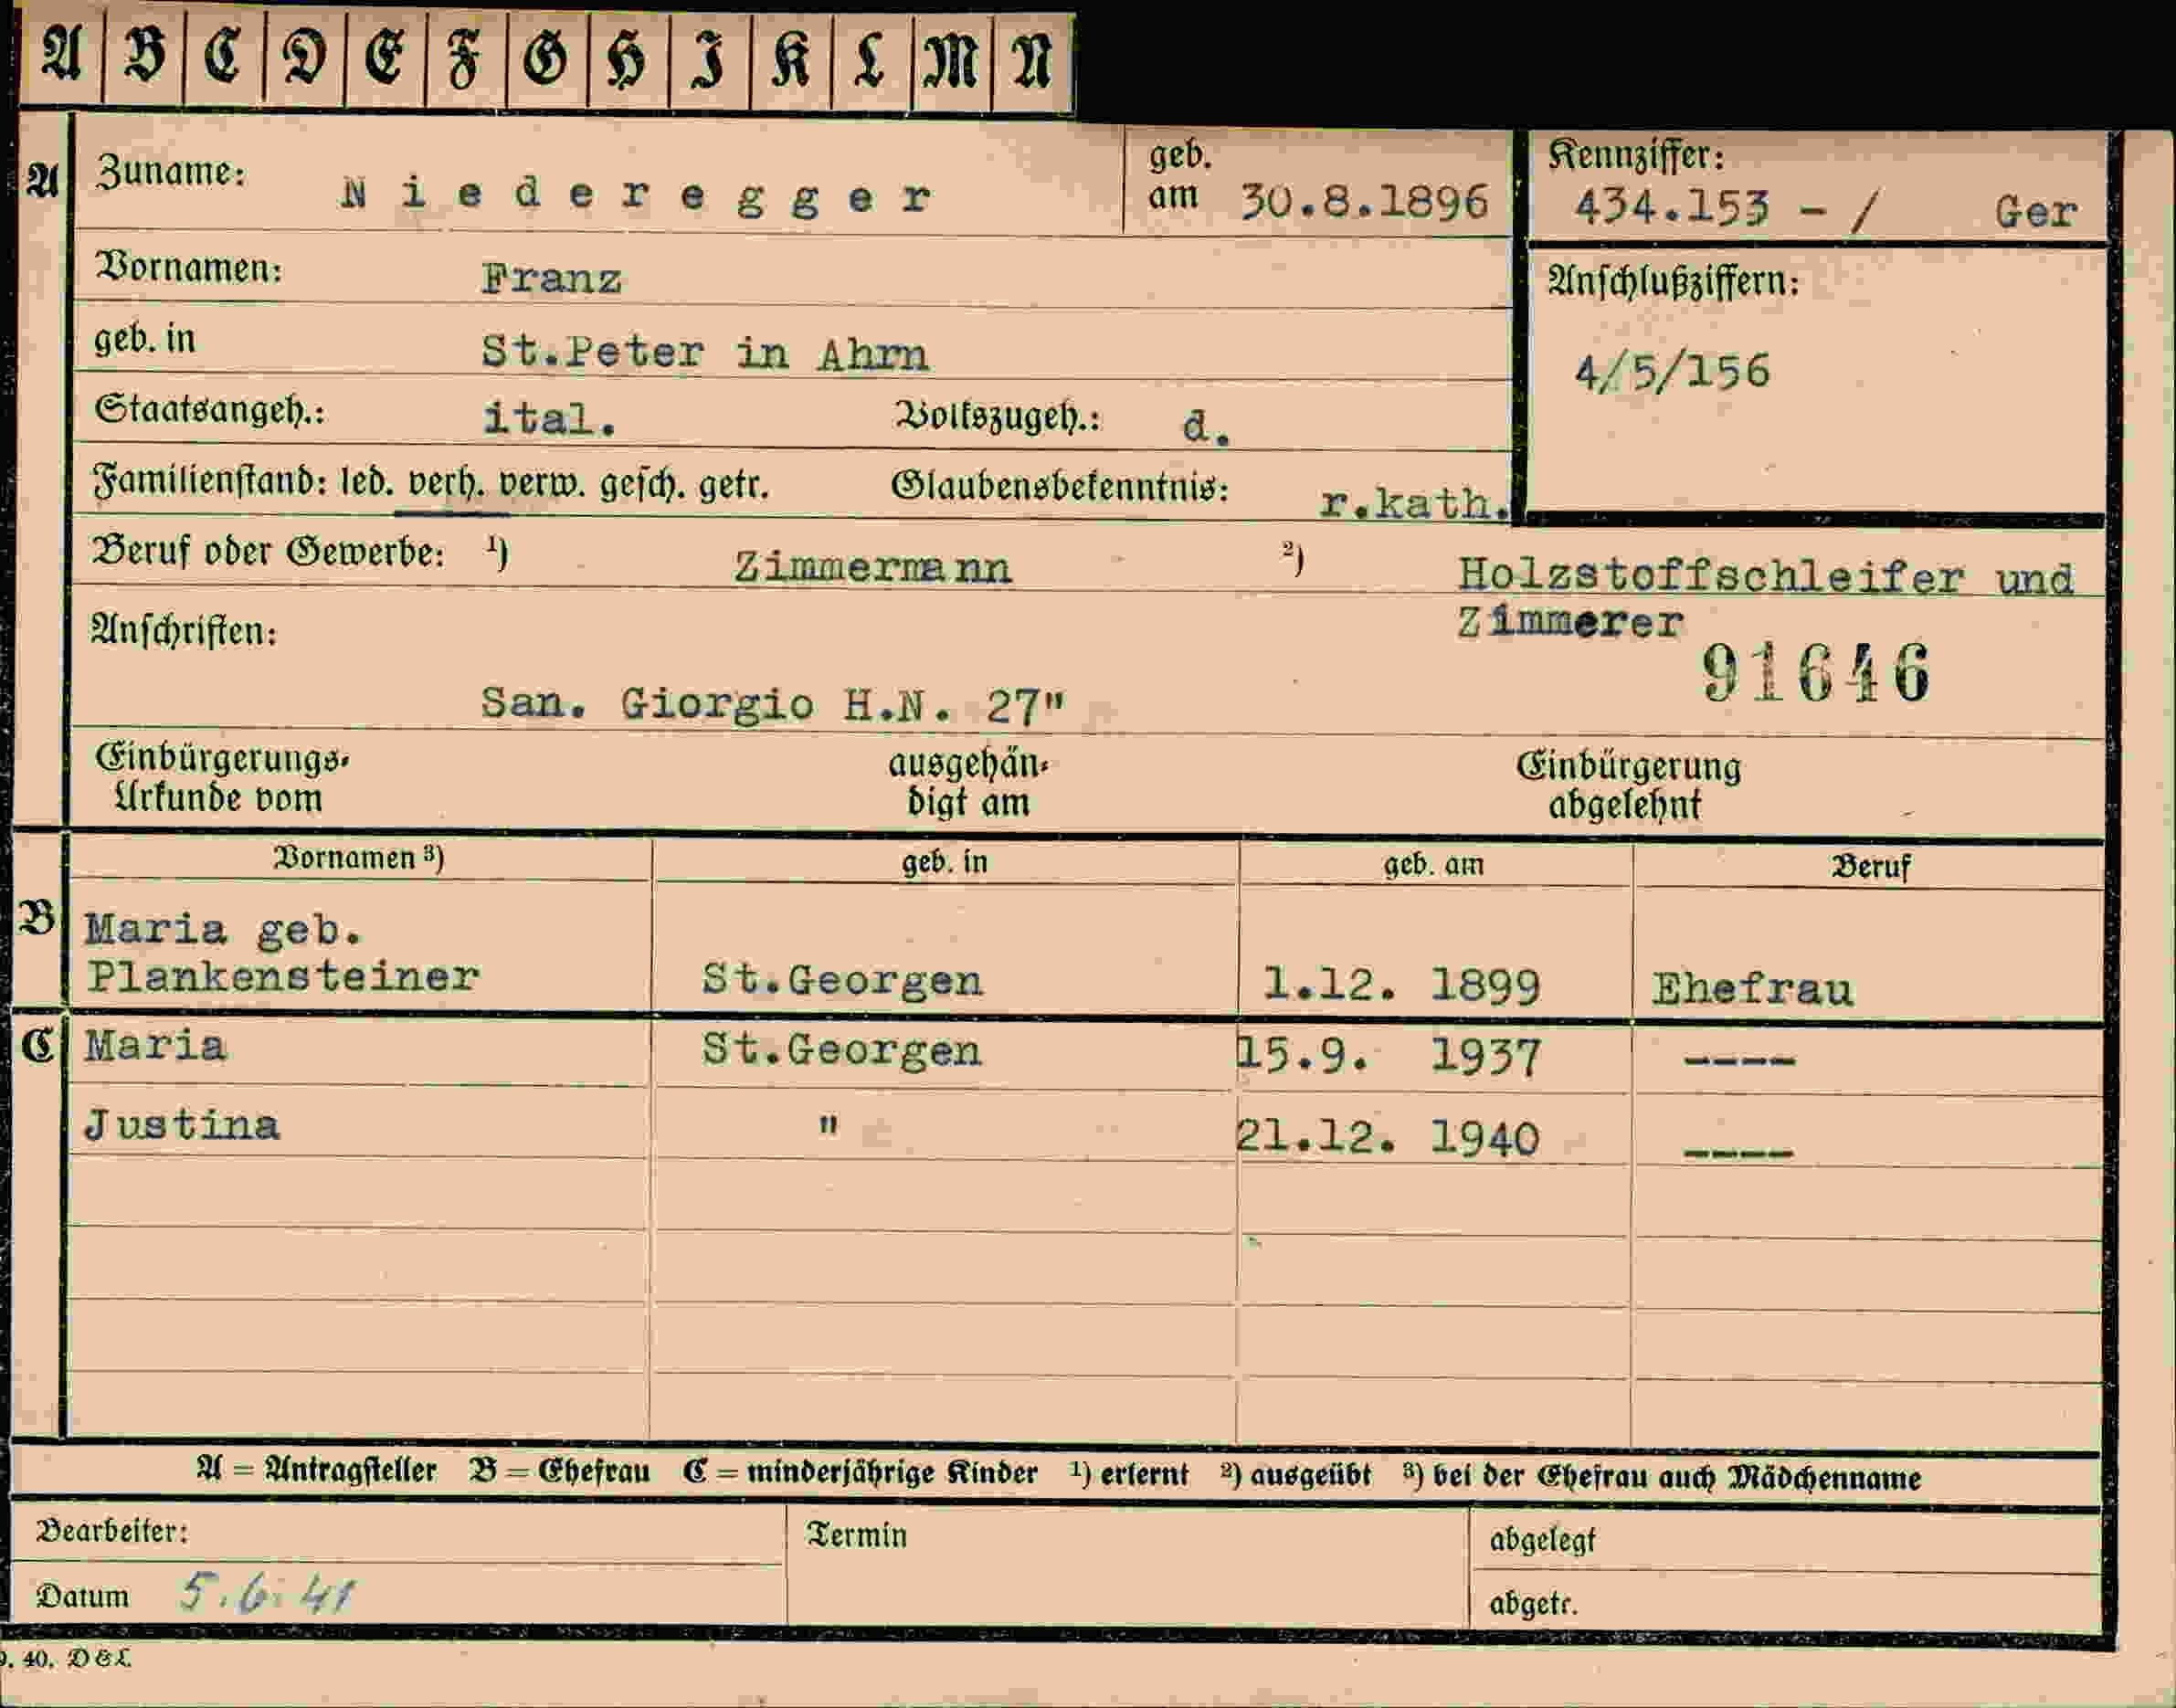 A B C D E F G H I K L M N
A Zuname: Niederegger geb. am 30.8.1896 Kennziffer: 434.153 - / Ger
Vornamen: Franz Anschlußziffern:
geb. in St.Peter in Ahrn 4/5/156
Staatsangeh.: ital. Volkszugeh.: d.
Familienstand: led. verh. verw. gesch. getr. Glaubensbekenntnis: r.kath.
Beruf oder Gewerbe: ¹) Zimmermann ²) Holzstoffschleifer und
Zimmerer
Anschriften:
91646
San. Giorgio H.N. 27"
Einbürgerungs-Urkunde vom ausgehändigt am Einbürgerung abgelehnt
Vornamen ³) geb. in geb. am Beruf
B Maria geb.
Plankensteiner St.Georgen 1.12. 1899 Ehefrau
C Maria St.Georgen 15.9. 1937 ----
Justina " 21.12. 1940 ----
A = Antragsteller B = Ehefrau C = minderjährige Kinder ¹) erlernt ²) ausgeübt ³) bei der Ehefrau auch Mädchenname
Bearbeiter: Termin abgelegt
Datum 5.6.41 abgetr.
. 40. D & L